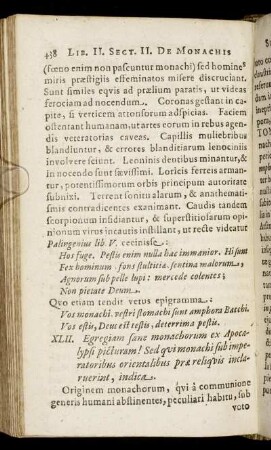 438 LIB. II. SECT. II. DE MONACHIS
(fœno enim non pascuntur monachi) sed homines
miris præstigiis effeminatos misere discruciant.
Sunt similes eqvis ad prælium paratis, ut videas
ferociam ad nocendum. Coronas gestant in ca-
pite, si verticem attonsorum adspicias. Faciem
ostentant humanam, ut artes eorum in rebus agen-
dis veteratorias caveas. Capillis muliebribus
blandiuntur, & errores blanditiarum lenociniis
involvere sciunt. Leoninis dentibus minantur, &
in nocendo sunt sævissimi. Loricis ferreis arman-
tur, potentissimorum orbis principum autoritate
subnixi. Terrent sonitu alarum, & anathemati-
smis contradicentes exanimant. Caudis tandem
scorpionum insidiantur, & superstitiosarum opi-
nionum virus incautis instillant, ut recte videatur
Palingenius lib. V. cecinisse.
Hos fuge. Pestis enim nulla hac immanior. Hi sunt
Fex hominum: fons stultitiæ. sentina malorum,
Agnorum sub pelle lupi: mercede colentes,
Non pietate Deum.
Quo etiam tendit vetus epigramma:
Vos monachi. vestri stomachi sunt amphora Bacchi.
Vos estis, Deus est testis, deterrima pestis.
XLII. Egregiam sane monachorum ex Apoca-
lypsi picturam! Sed qvi monachi sub impe-
ratoribus orientalibus præ reliqvis incla-
ruerint, indica.
Originem monachorum, qvi à communione
generis humani abstinentes, peculiari habitu, sub
voto